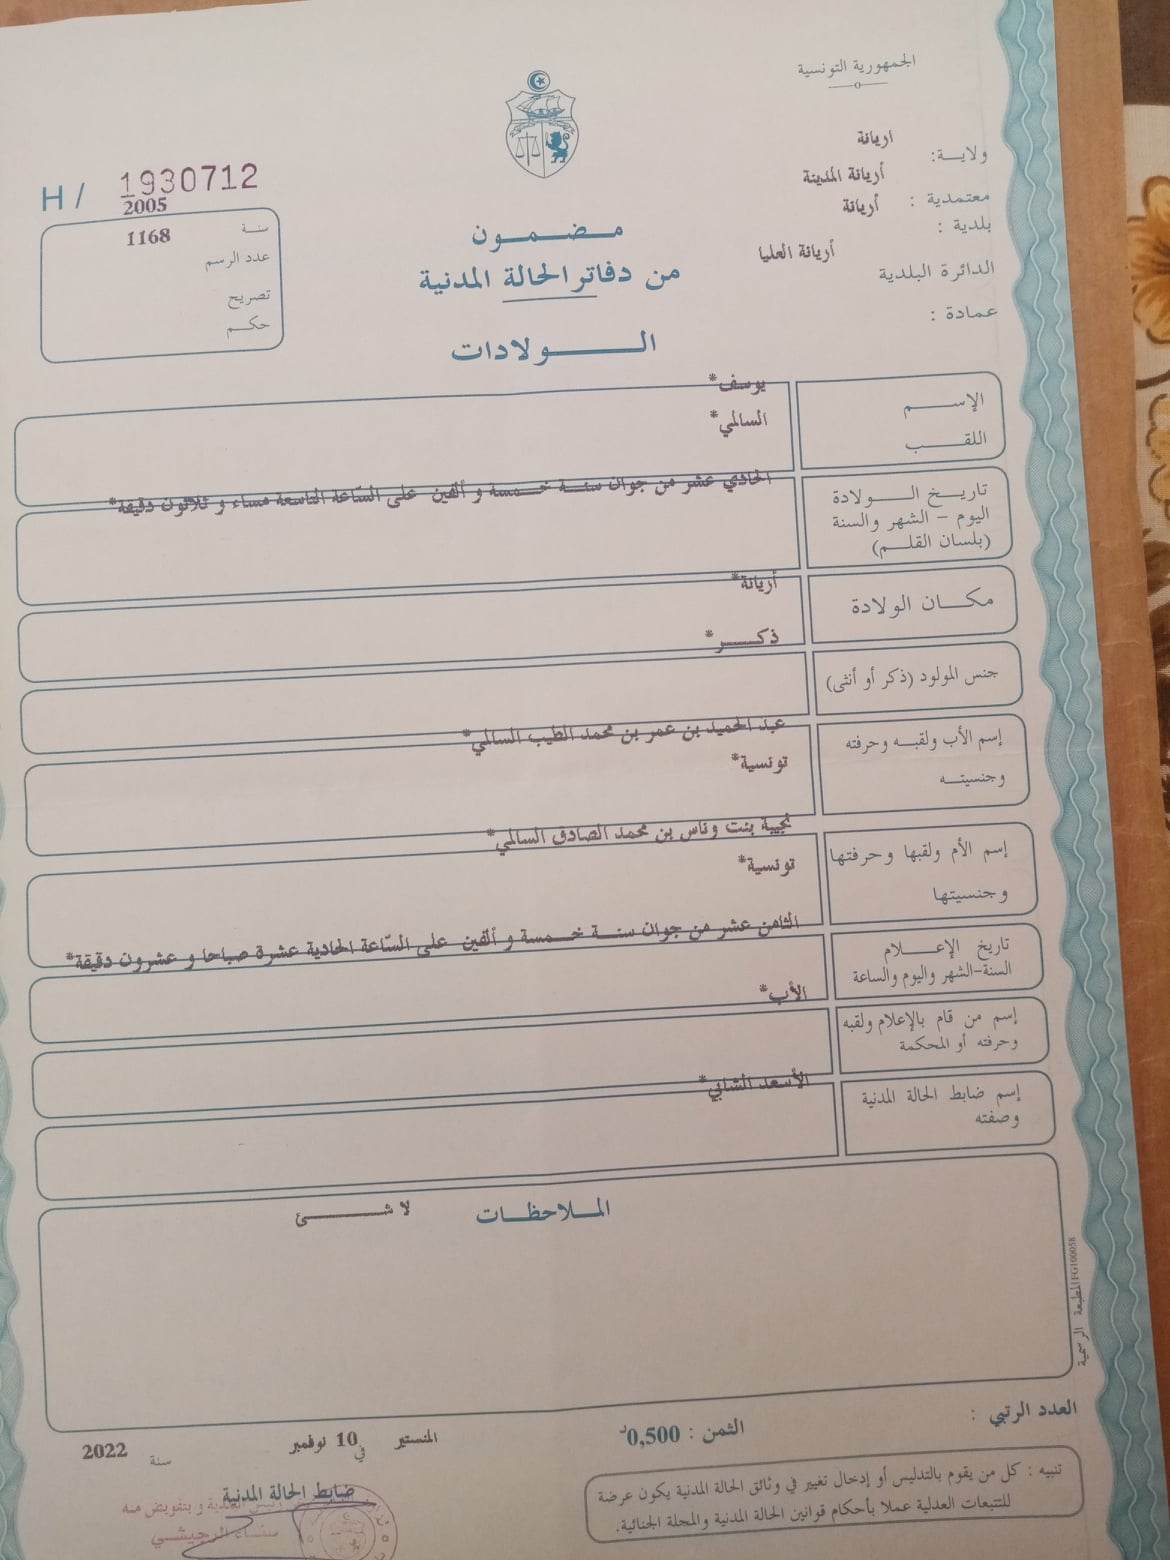 الجمهورية التونسية
ولاية: اريانة
معتمدية : أريانة المدينة
بلدية : أريانة
الدائرة البلدية أريانة العليا
عمادة :
H / 1930712
سنة 2005
عدد الرسم 1168
تصريح
حكم
مضمون
من دفاتر الحالة المدنية
الولادات
الإسم يوسف*
اللقب السالمي*
تاريخ الولادة الحادي عشر من جوان سنة خمسة و ألفين على السّاعة التاسعة مساء و ثلاثون دقيقة*
اليوم - الشهر والسنة
(بلسان القلم)
مكان الولادة أريانة*
جنس المولود (ذكر أو أنثى) ذكر*
إسم الأب ولقبه وحرفته عبد الحميد بن عمر بن محمد الطيب السالمي*
وجنسيته تونسية*
إسم الأم ولقبها وحرفتها نجيبة بنت وناس بن محمد الصادق السالمي*
وجنسيتها تونسية*
تاريخ الإعلام الثامن عشر من جوان سنة خمسة و ألفين على السّاعة الحادية عشرة صباحا و عشرون دقيقة*
السنة-الشهر واليوم والساعة
إسم من قام بالإعلام ولقبه الأب*
وحرفته أو المحكمة
إسم ضابط الحالة المدنية الأسعد الشابي*
وصفته
الملاحظات لا شئ
المطبعة الرسمية FG100058
العدد الرتبي :
الثمن : 0,500د
المنستير في 10 نوفمبر سنة 2022
تنبيه : كل من يقوم بالتدليس أو إدخال تغيير في وثائق الحالة المدنية يكون عرضة
للتتبعات العدلية عملا بأحكام قوانين الحالة المدنية والمجلة الجنائية.
ضابط الحالة المدنية
و بتفويض منه
سناء الرجيشي